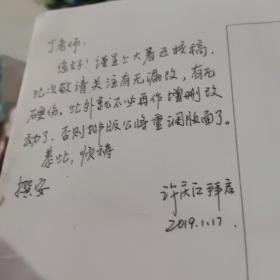 丁老师:
您好!谨呈上大著五校稿,
此次敬请关注有无漏改,有无
硬伤。此外就不必再作增删改
动了,否则排版公将重调版面了。
恭此,顺祷
撰安
许庆江拜启
2019.1.17.